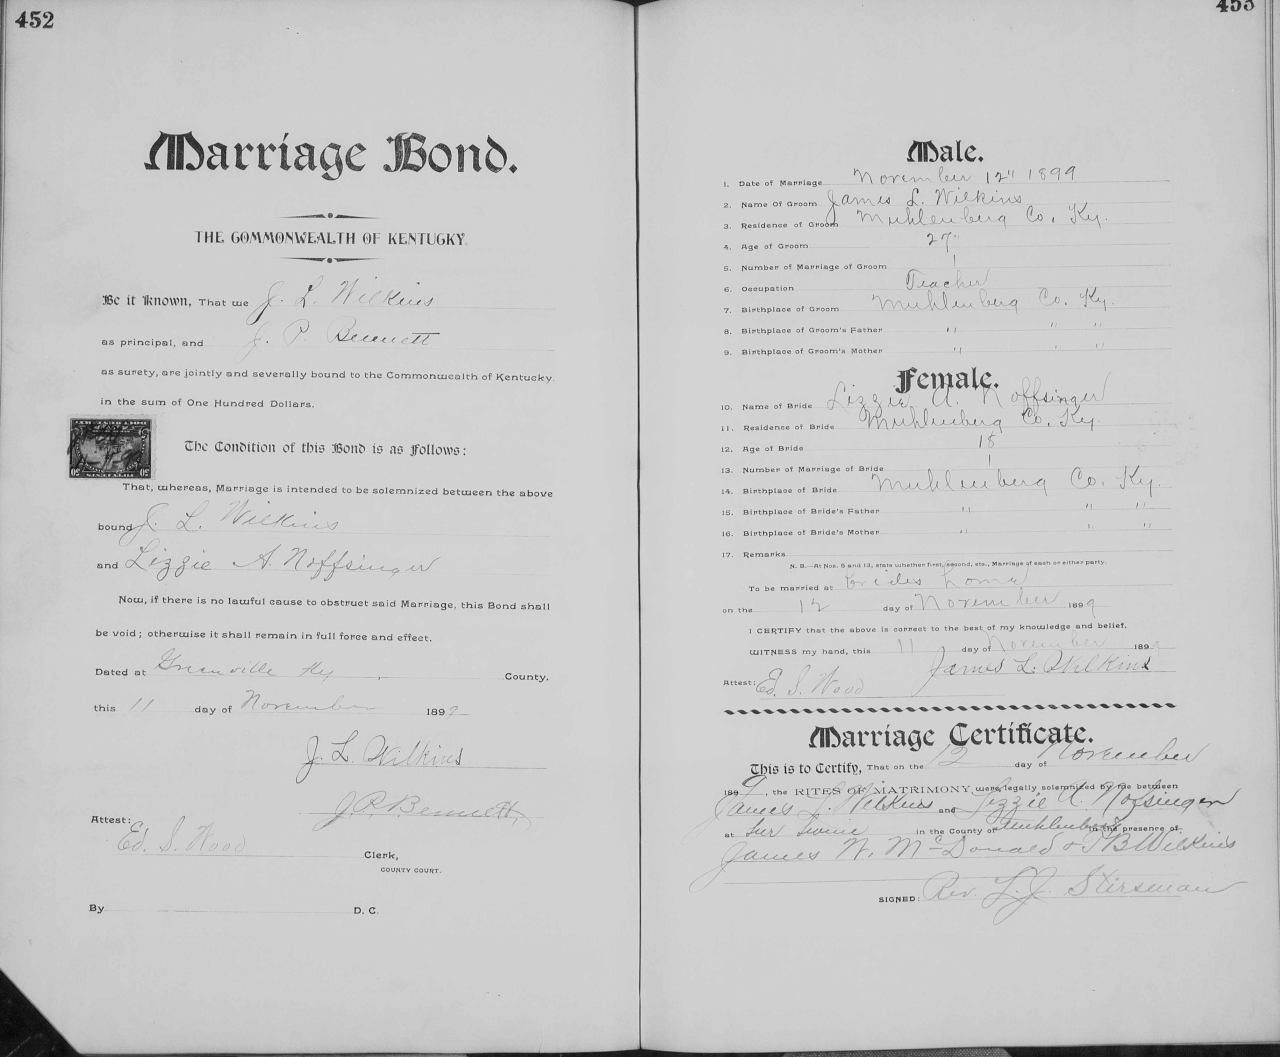 452
Marriage Bond.
THE COMMONWEALTH OF KENTUCKY.
Be it Known, That we J. L. Wilkins
as principal, and J. P. Bennett
as surety, are jointly and severally bound to the Commonwealth of Kentucky
in the sum of One Hundred Dollars.
The Condition of this Bond is as Follows:
That, whereas, Marriage is intended to be solemnized between the above
bound J. L. Wilkins
and Lizzie A. Noffsinger
Now, if there is no lawful cause to obstruct said Marriage, this Bond shall
be void; otherwise it shall remain in full force and effect.
Dated at Greenville Ky County,
this 11 day of November 1899
J. L. Wilkins
J. P. Bennett
Attest:
Ed. S. Wood
Clerk,
COUNTY COURT.
By D. C.
453
Male.
1. Date of Marriage November 12" 1899
2. Name Of Groom James L. Wilkins
3. Residence of Groom Muhlenberg Co. Ky.
4. Age of Groom 27"
5. Number of Marriage of Groom 1
6. Occupation Teacher
7. Birthplace of Groom Muhlenberg Co. Ky.
8. Birthplace of Groom's Father " " "
9. Birthplace of Groom's Mother " " "
Female.
10. Name of Bride Lizzie A. Noffsinger
11. Residence of Bride Muhlenberg Co. Ky.
12. Age of Bride
13. Number of Marriage of Bride 1
14. Birthplace of Bride Muhlenberg Co. Ky.
15. Birthplace of Bride's Father " " "
16. Birthplace of Bride's Mother " " "
17. Remarks
N. B.—At Nos. 5 and 13, state whether first, second, etc., Marriage of each or either party.
To be married at brides home
on the 12 day of November 1899
I CERTIFY that the above is correct to the best of my knowledge and belief.
WITNESS my hand, this 11 day of November 1899
James L. Wilkins
Attest: Ed. S. Wood
Marriage Certificate.
This is to Certify, That on the 12 day of November
1899, the RITES OF MATRIMONY were legally solemnized by me between
James L. Wilkins and Lizzie A. Nofsinger
at her home in the County of Muhlenberg in the presence of
James W. McDonald & T B Wilkins
SIGNED: Rev. L. J. Stirsman